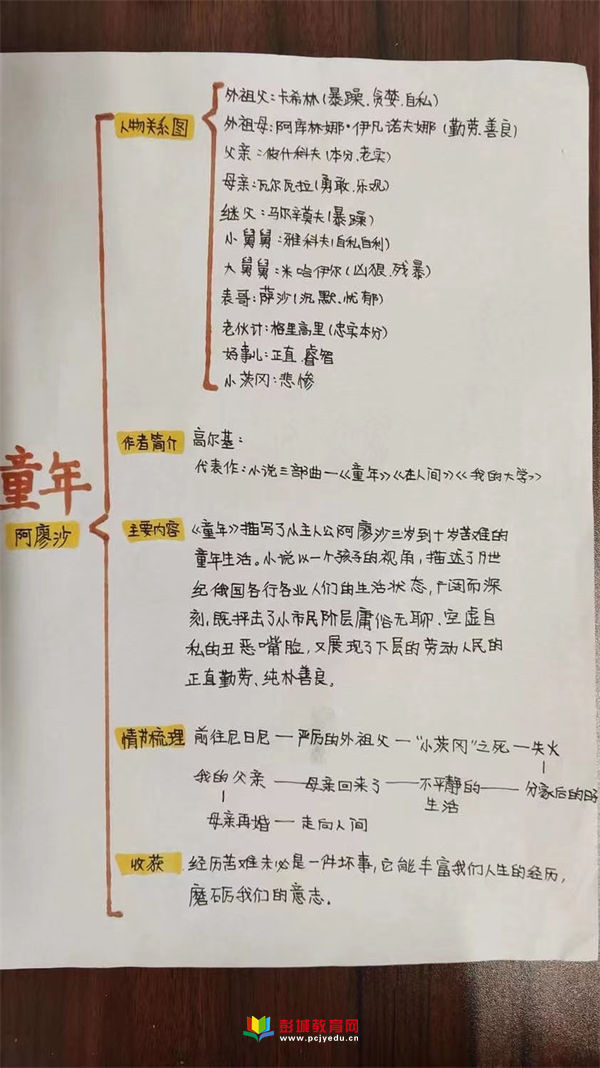 童年
阿廖沙
人物关系图
外祖父:卡希林(暴躁.贪婪.自私)
外祖母:阿库林娜·伊凡诺夫娜(勤劳.善良)
父亲:彼什科夫(本分.老实)
母亲:瓦尔瓦拉(勇敢.乐观)
继父:马尔辛莫夫(暴躁)
小舅舅:雅科夫(自私自利)
大舅舅:米哈伊尔(凶狠.残暴)
表哥:萨沙(沉默.忧郁)
老伙计:格里高里(忠实本分)
好事儿:正直.睿智
小茨冈:悲惨
作者简介
高尔基:
代表作:小说三部曲—《童年》《在人间》《我的大学》
主要内容
《童年》描写了小主人公阿廖沙三岁到十岁苦难的
童年生活。小说以一个孩子的视角,描述了19世
纪俄国各行各业人们的生活状态,广阔而深
刻,既抨击了小市民阶层庸俗无聊、空虚自
私的丑恶嘴脸,又展现了下层的劳动人民的
正直勤劳、纯朴善良。
情节梳理
前往尼日尼—严厉的外祖父—“小茨冈”之死—失火
我的父亲——母亲回来了——不平静的生活——分家后的日子
母亲再婚—走向人间
收获
经历苦难未必是一件坏事,它能丰富我们人生的经历,
磨砺我们的意志.
彭城教育网
www.pcjyedu.cn